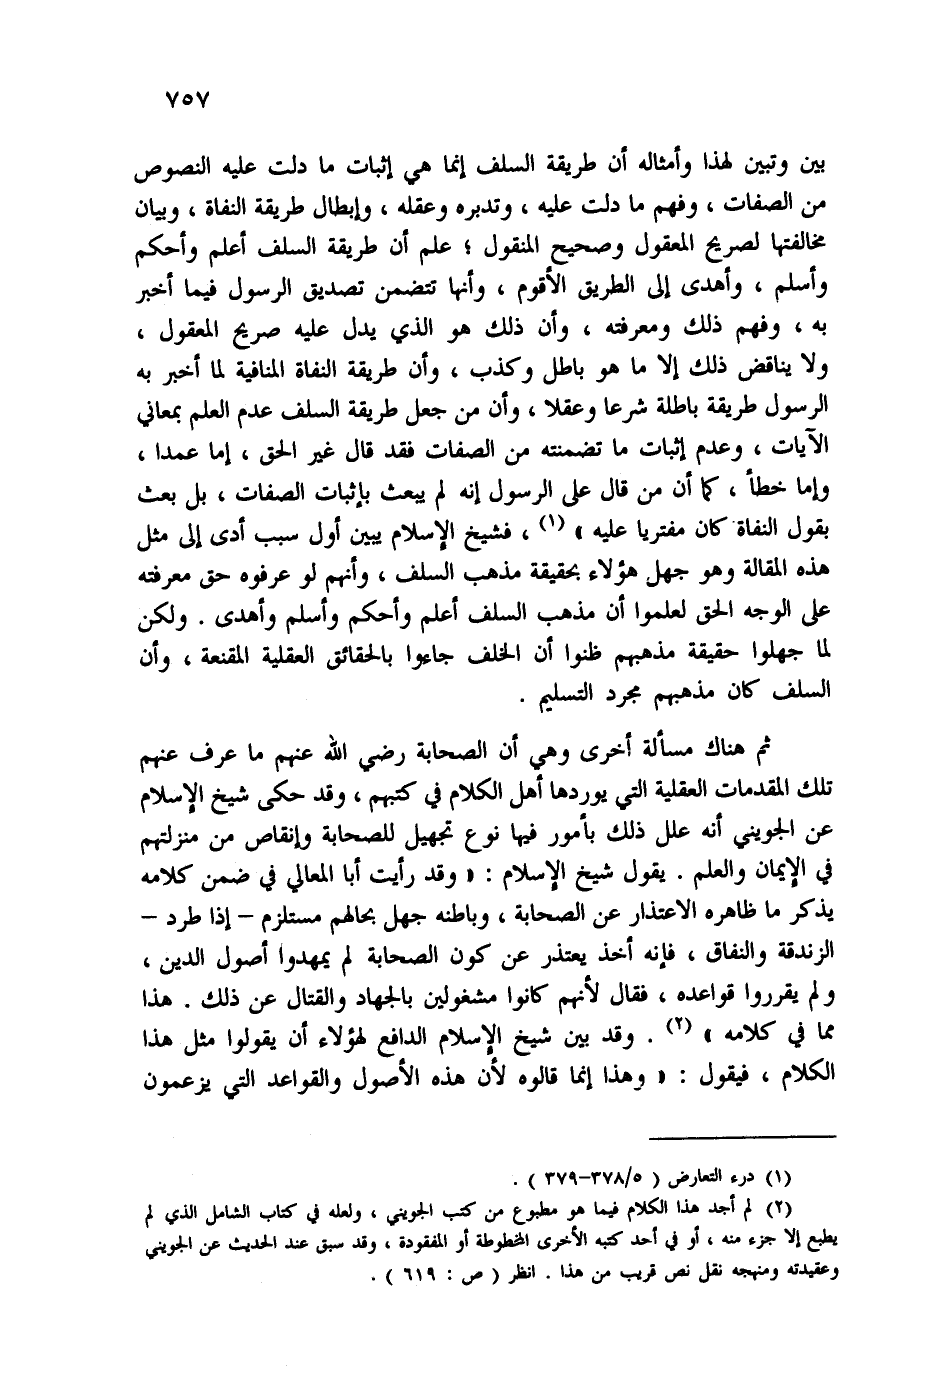 ٧٥٧
بين وتبين لهذا وأمثاله أن طريقة السلف إنما هي إثبات ما دلت عليه النصوص
من الصفات ، وفهم ما دلت عليه ، وتدبره وعقله ، وإبطال طريقة النفاة ، وبيان
مخالفتها لصريح المعقول وصحيح المنقول ؛ علم أن طريقة السلف أعلم وأحكم
وأسلم ، وأهدى إلى الطريق الأقوم ، وأنها تتضمن تصديق الرسول فيما أخبر
به ، وفهم ذلك ومعرفته ، وأن ذلك هو الذي يدل عليه صريح المعقول ،
ولا يناقض ذلك إلا ما هو باطل وكذب ، وأن طريقة النفاة المنافية لما أخبر به
الرسول طريقة باطلة شرعا وعقلا ، وأن من جعل طريقة السلف عدم العلم بمعاني
الآيات ، وعدم إثبات ما تضمنته من الصفات فقد قال غير الحق ، إما عمدا ،
وإما خطأ ، كما أن من قال على الرسول إنه لم يبعث بإثبات الصفات ، بل بعث
بقول النفاة كان مفتريا عليه » (١) ، فشيخ الإسلام يبين أول سبب أدى إلى مثل
هذه المقالة وهو جهل هؤلاء بحقيقة مذهب السلف ، وأنهم لو عرفوه حق معرفته
على الوجه الحق لعلموا أن مذهب السلف أعلم وأحكم وأسلم وأهدى . ولكن
لما جهلوا حقيقة مذهبهم ظنوا أن الخلف جاءوا بالحقائق العقلية المقنعة ، وأن
السلف كان مذهبهم مجرد التسليم .
ثم هناك مسألة أخرى وهي أن الصحابة رضي الله عنهم ما عرف عنهم
تلك المقدمات العقلية التي يوردها أهل الكلام في كتبهم ، وقد حكى شيخ الإسلام
عن الجويني أنه علل ذلك بأمور فيها نوع تجهيل للصحابة وإنقاص من منزلتهم
في الإيمان والعلم . يقول شيخ الإسلام : « وقد رأيت أبا المعالي في ضمن كلامه
يذكر ما ظاهره الاعتذار عن الصحابة ، وباطنه جهل بحالهم مستلزم – إذا طرد –
الزندقة والنفاق ، فإنه أخذ يعتذر عن كون الصحابة لم يمهدوا أصول الدين ،
ولم يقرروا قواعده ، فقال لأنهم كانوا مشغولين بالجهاد والقتال عن ذلك . هذا
مما في كلامه » (٢) . وقد بين شيخ الإسلام الدافع لهؤلاء أن يقولوا مثل هذا
الكلام ، فيقول : « وهذا إنما قالوه لأن هذه الأصول والقواعد التي يزعمون
(١) درء التعارض ( ٥/٣٧٨–٣٧٩ ) .
(٢) لم أجد هذا الكلام فيما هو مطبوع من كتب الجويني ، ولعله في كتاب الشامل الذي لم
يطبع إلا جزء منه ، أو في أحد كتبه الأخرى المخطوطة أو المفقودة ، وقد سبق عند الحديث عن الجويني
وعقيدته ومنهجه نقل نص قريب من هذا . انظر ( ص : ٦١٩ ) .